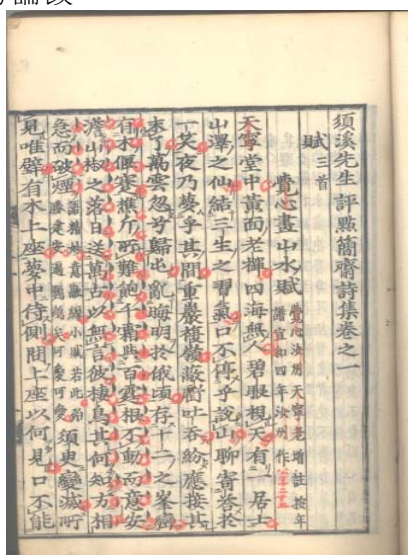 須溪先生評點簡齋詩集卷之一
賦三首
覺心畫山水賦
覺心汝州天寧老增註按年
譜宣和四年汝州作
天寧堂中黃面老禪四海無人碧眼視天有一居士
山澤之仙結三生之習氣口不停乎說山聊寄答於
一笑夜乃夢乎其間重巖複嶺蔽虧吐吞紛應接其
未了萬雲忽兮歸屯亂晦明於俄頃存十二之峯巒
有木偃蹇樵斤所難飽千霜與百霆根不動而意安
澹山椒之落日送萬古以無言彼棲鳥其何知方相
急而破煙
諸精妙意難經小賦若此殆
勝建安過鸚鵡矣可愛可愛
須臾變滅所
見唯壁有木上座夢中侍側問上座以何見口不能